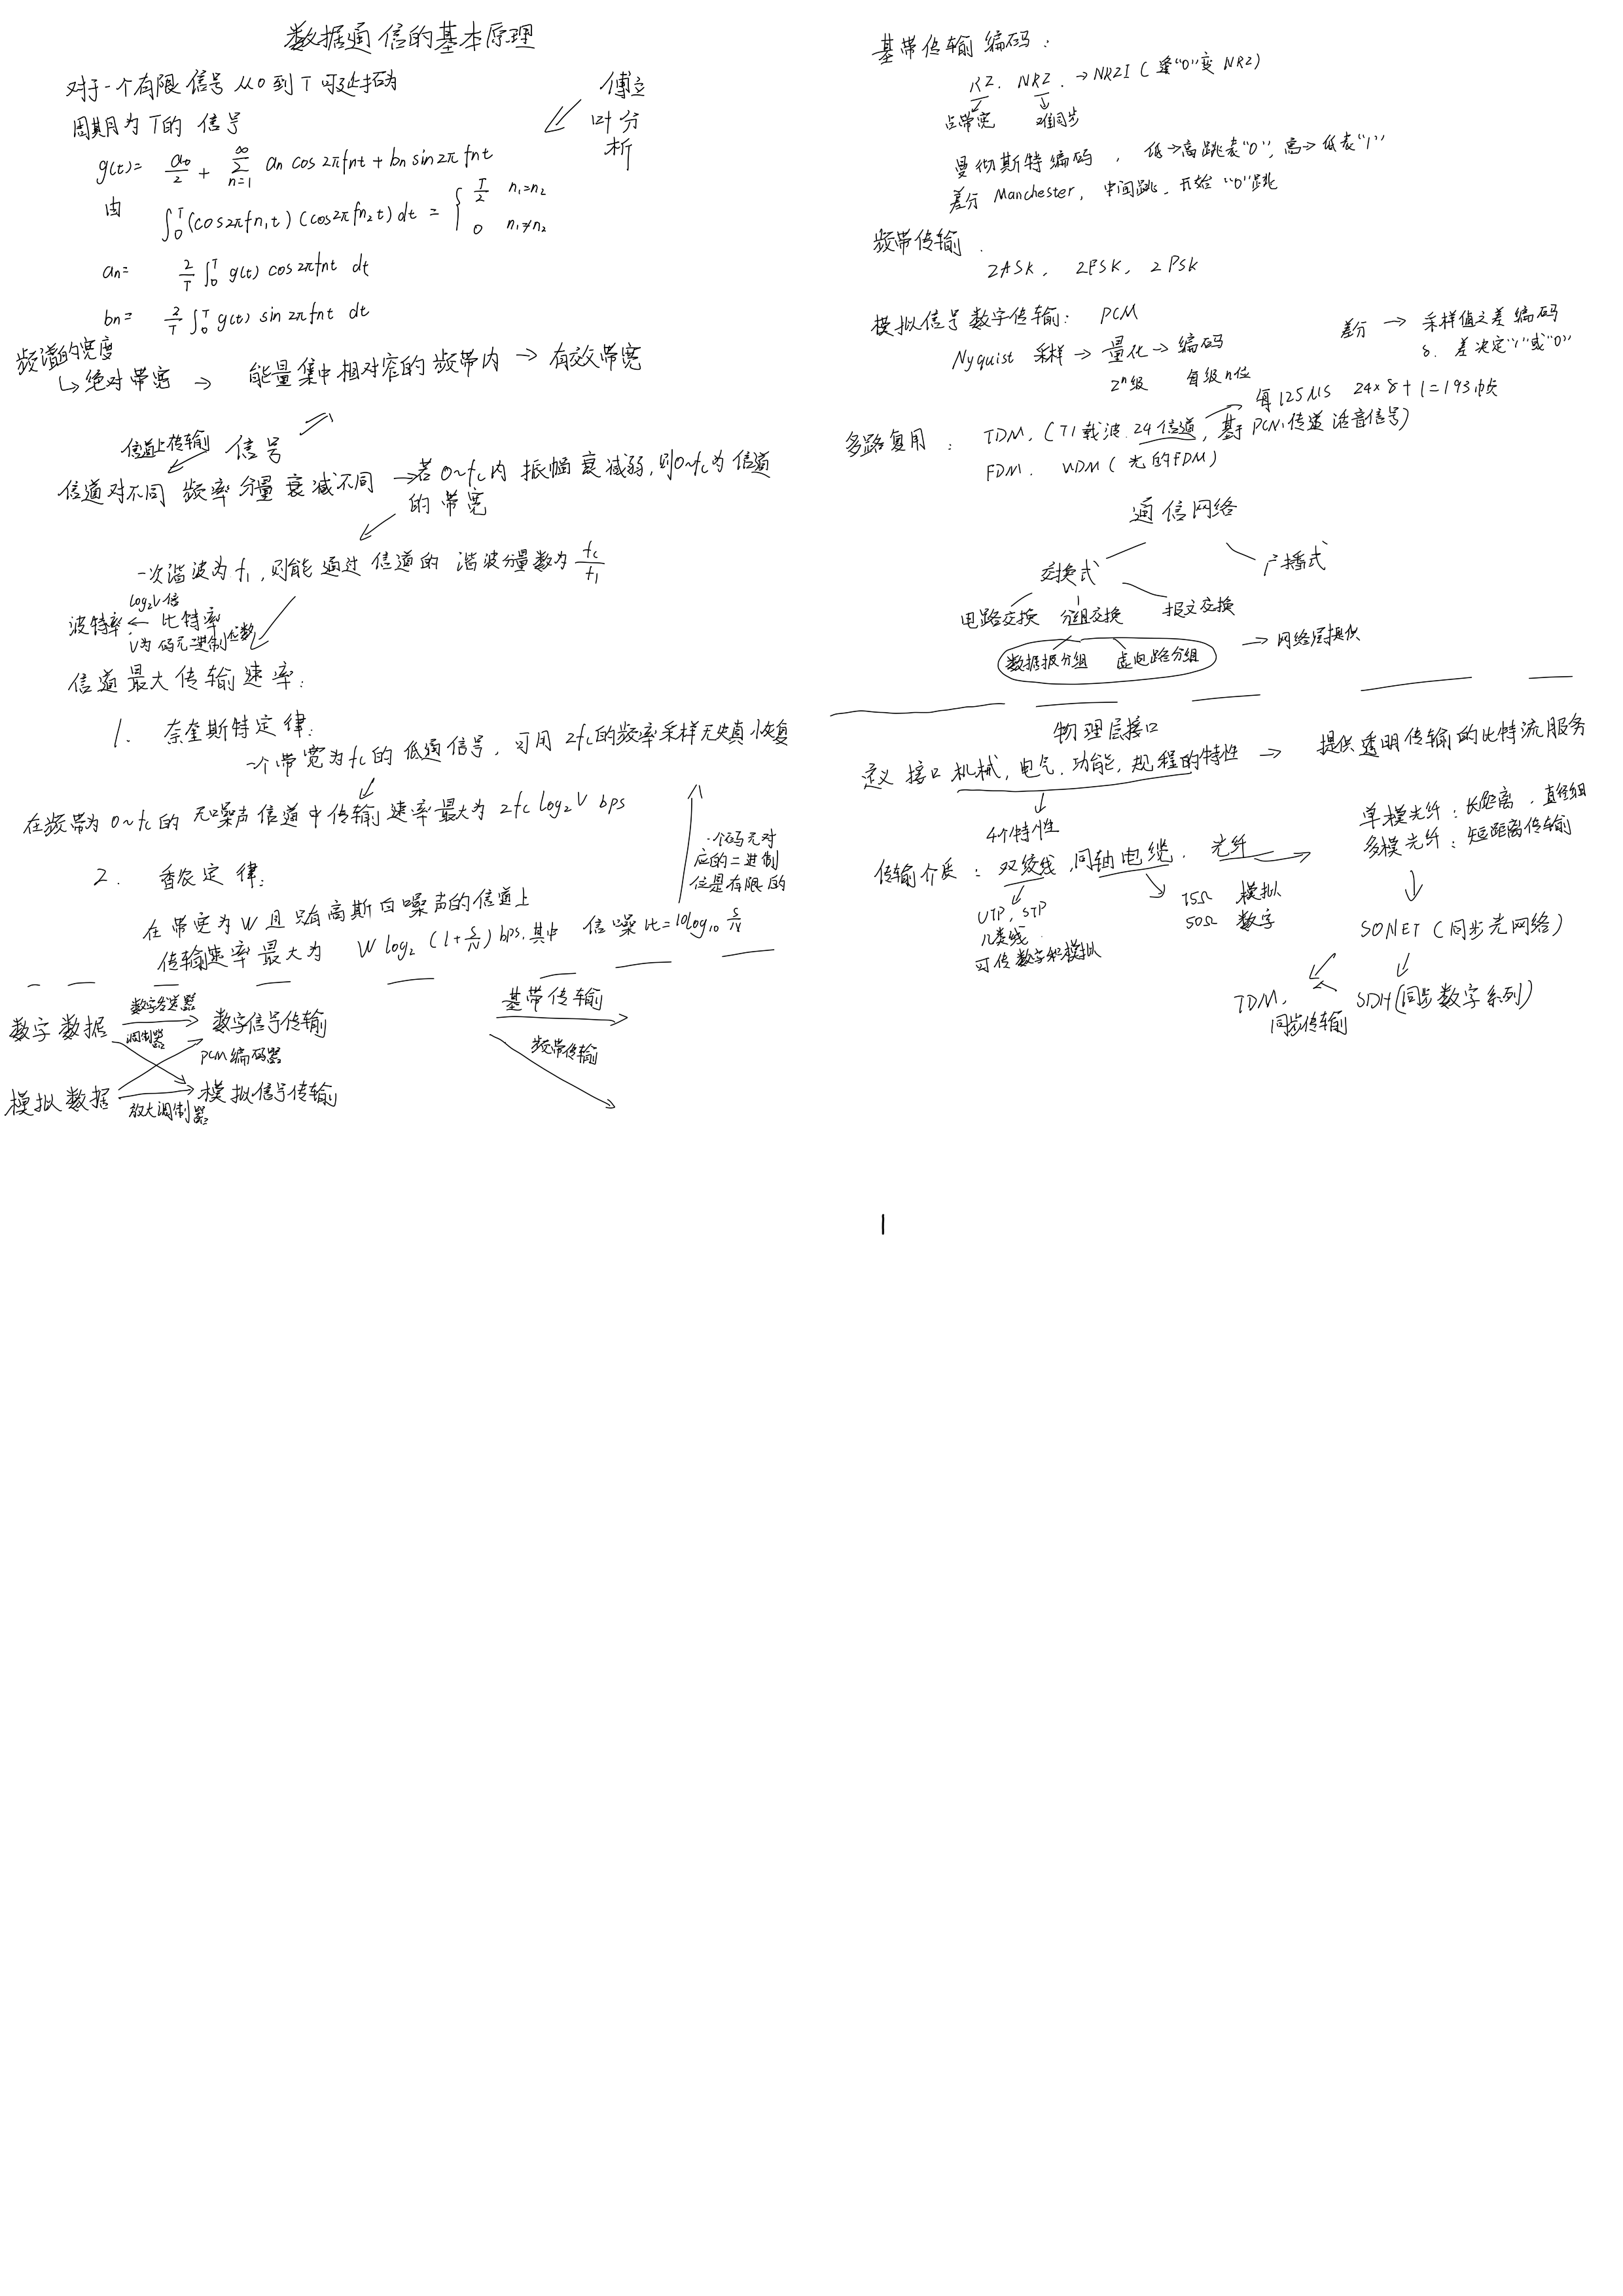 数据通信的基本原理
对于一个有限信号从0到T可延拓为
周期为T的信号
傅立
叶分
析
g(t)= a₀/2 + ∑_{n=1}^{∞} aₙ cos 2πfnt + bₙ sin 2πfnt
由
∫₀ᵀ (cos2πfn₁t)(cos2πfn₂t)dt = { T/2 n₁=n₂
0 n₁≠n₂
aₙ= 2/T ∫₀ᵀ g(t) cos2πfnt dt
bₙ= 2/T ∫₀ᵀ g(t) sin 2πfnt dt
频谱的宽度
↳ 绝对带宽 → 能量集中相对窄的频带内 → 有效带宽
信道上传输 信号
信道对不同频率分量衰减不同 → 若0~fc内振幅衰减弱,则0~fc为信道
的带宽
一次谐波为f₁,则能通过信道的谐波分量数为 fc/f₁
log₂V倍
波特率 ← 比特率
V为码元进制位数
信道最大传输速率:
1. 奈奎斯特定律:
一个带宽为fc的低通信号,可用2fc的频率采样无失真恢复
在频带为0~fc的无噪声信道中传输速率最大为2fc log₂V bps
一个码元对
应的二进制
位是有限的
2. 香农定律:
在带宽为W且只有高斯白噪声的信道上
传输速率最大为 W log₂ (1+S/N) bps.其中 信噪比=10log₁₀ S/N
数字数据 数字发送器 数字信号传输
调制器
PCM编码器
模拟数据 模拟信号传输
放大调制器
基带传输
频带传输
基带传输编码:
RZ. NRZ. → NRZI (逢"0"变NRZ)
占带宽 难同步
曼彻斯特编码, 低→高跳表"0",高→低表"1"
差分Manchester, 中间跳.开始"0"跳
频带传输.
2ASK, 2FSK, 2PSK
模拟信号数字传输: PCM
Nyquist 采样 → 量化 → 编码
2ⁿ级 每级n位
差分 → 采样值之差编码
δ. 差决定"1"或"0"
每125μs 24×8+1=193/帧
多路复用: TDM. (T1载波.24信道,基于PCM,传道话音信号)
FDM. WDM (光的FDM)
通信网络
交换式 广播式
电路交换 分组交换 报文交换
数据报分组 虚电路分组 → 网络层提供
物理层接口
定义接口机械,电气.功能,规程的特性 → 提供透明传输的比特流服务
4个特性
传输介质: 双绞线,同轴电缆.光纤
单模光纤:长距离.直径细
多模光纤:短距离传输
UTP, STP
几类线
可传数字和模拟
75Ω 模拟
50Ω 数字
SONET (同步光网络)
TDM.
同步传输
SDH (同步数字系列)